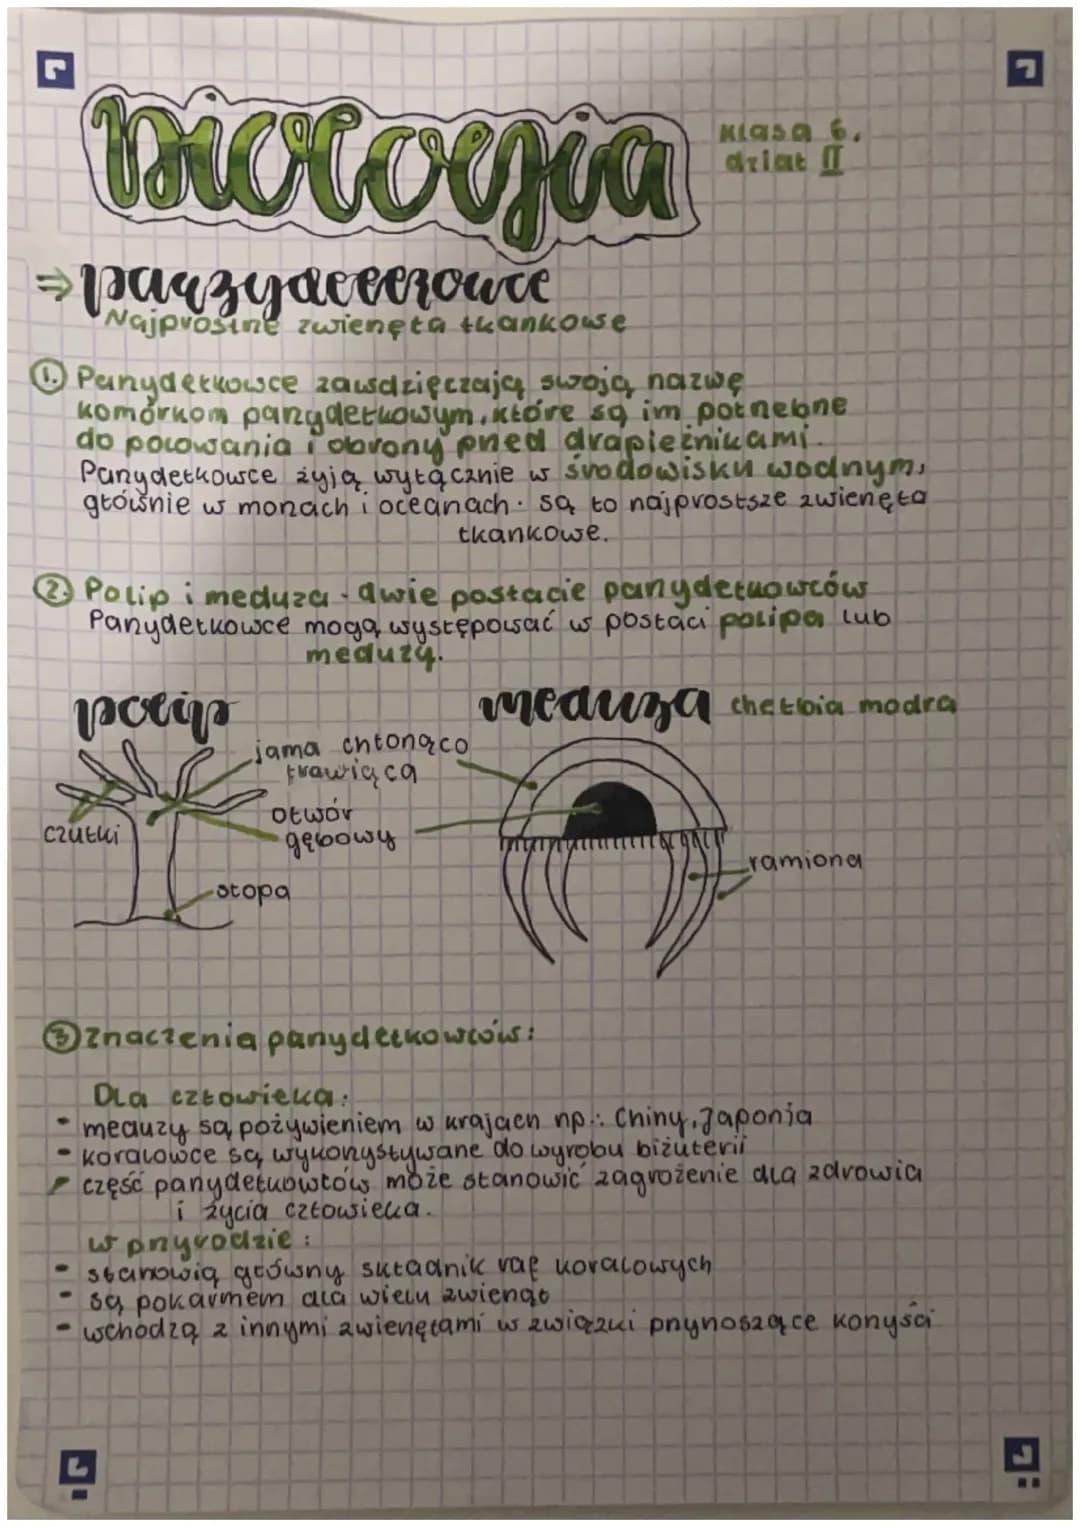 Biologia
Klasa 6.
dział II
⇒ parzydełkowce
Najprostrze zwierzęta tkankowe
1. Parzydełkowce zawdzięczają swoją nazwę
komórkom parzydełkowym, które są im potrzebne
do polowania i obrony przed drapieżnikami.
Parzydełkowce żyją wyłącznie w środowisku wodnym,
głównie w morzach i oceanach. są to najprostsze zwierzęta
tkankowe.
2. Polip i meduza - dwie postacie parzydełkowców
Parzydełkowce mogą występować w postaci polipa lub
meduzy.
polip
meduza chełbia modra
jama chłonąco
trawiąca
otwór
gębowy
czułki
stopa
ramiona
3 Znaczenia parzydełkowców:
Dla człowieka:
- meduzy są pożywieniem w krajach np.: Chiny, Japonia
- koralowce są wykorzystywane do wyrobu biżuterii
- część parzydełkowców może stanowić zagrożenie dla zdrowia
i życia człowieka.
w przyrodzie:
- stanowią główny składnik raf koralowych
- są pokarmem dla wielu zwierząt
- wchodzą z innymi zwierzętami w związki przynoszące korzyści